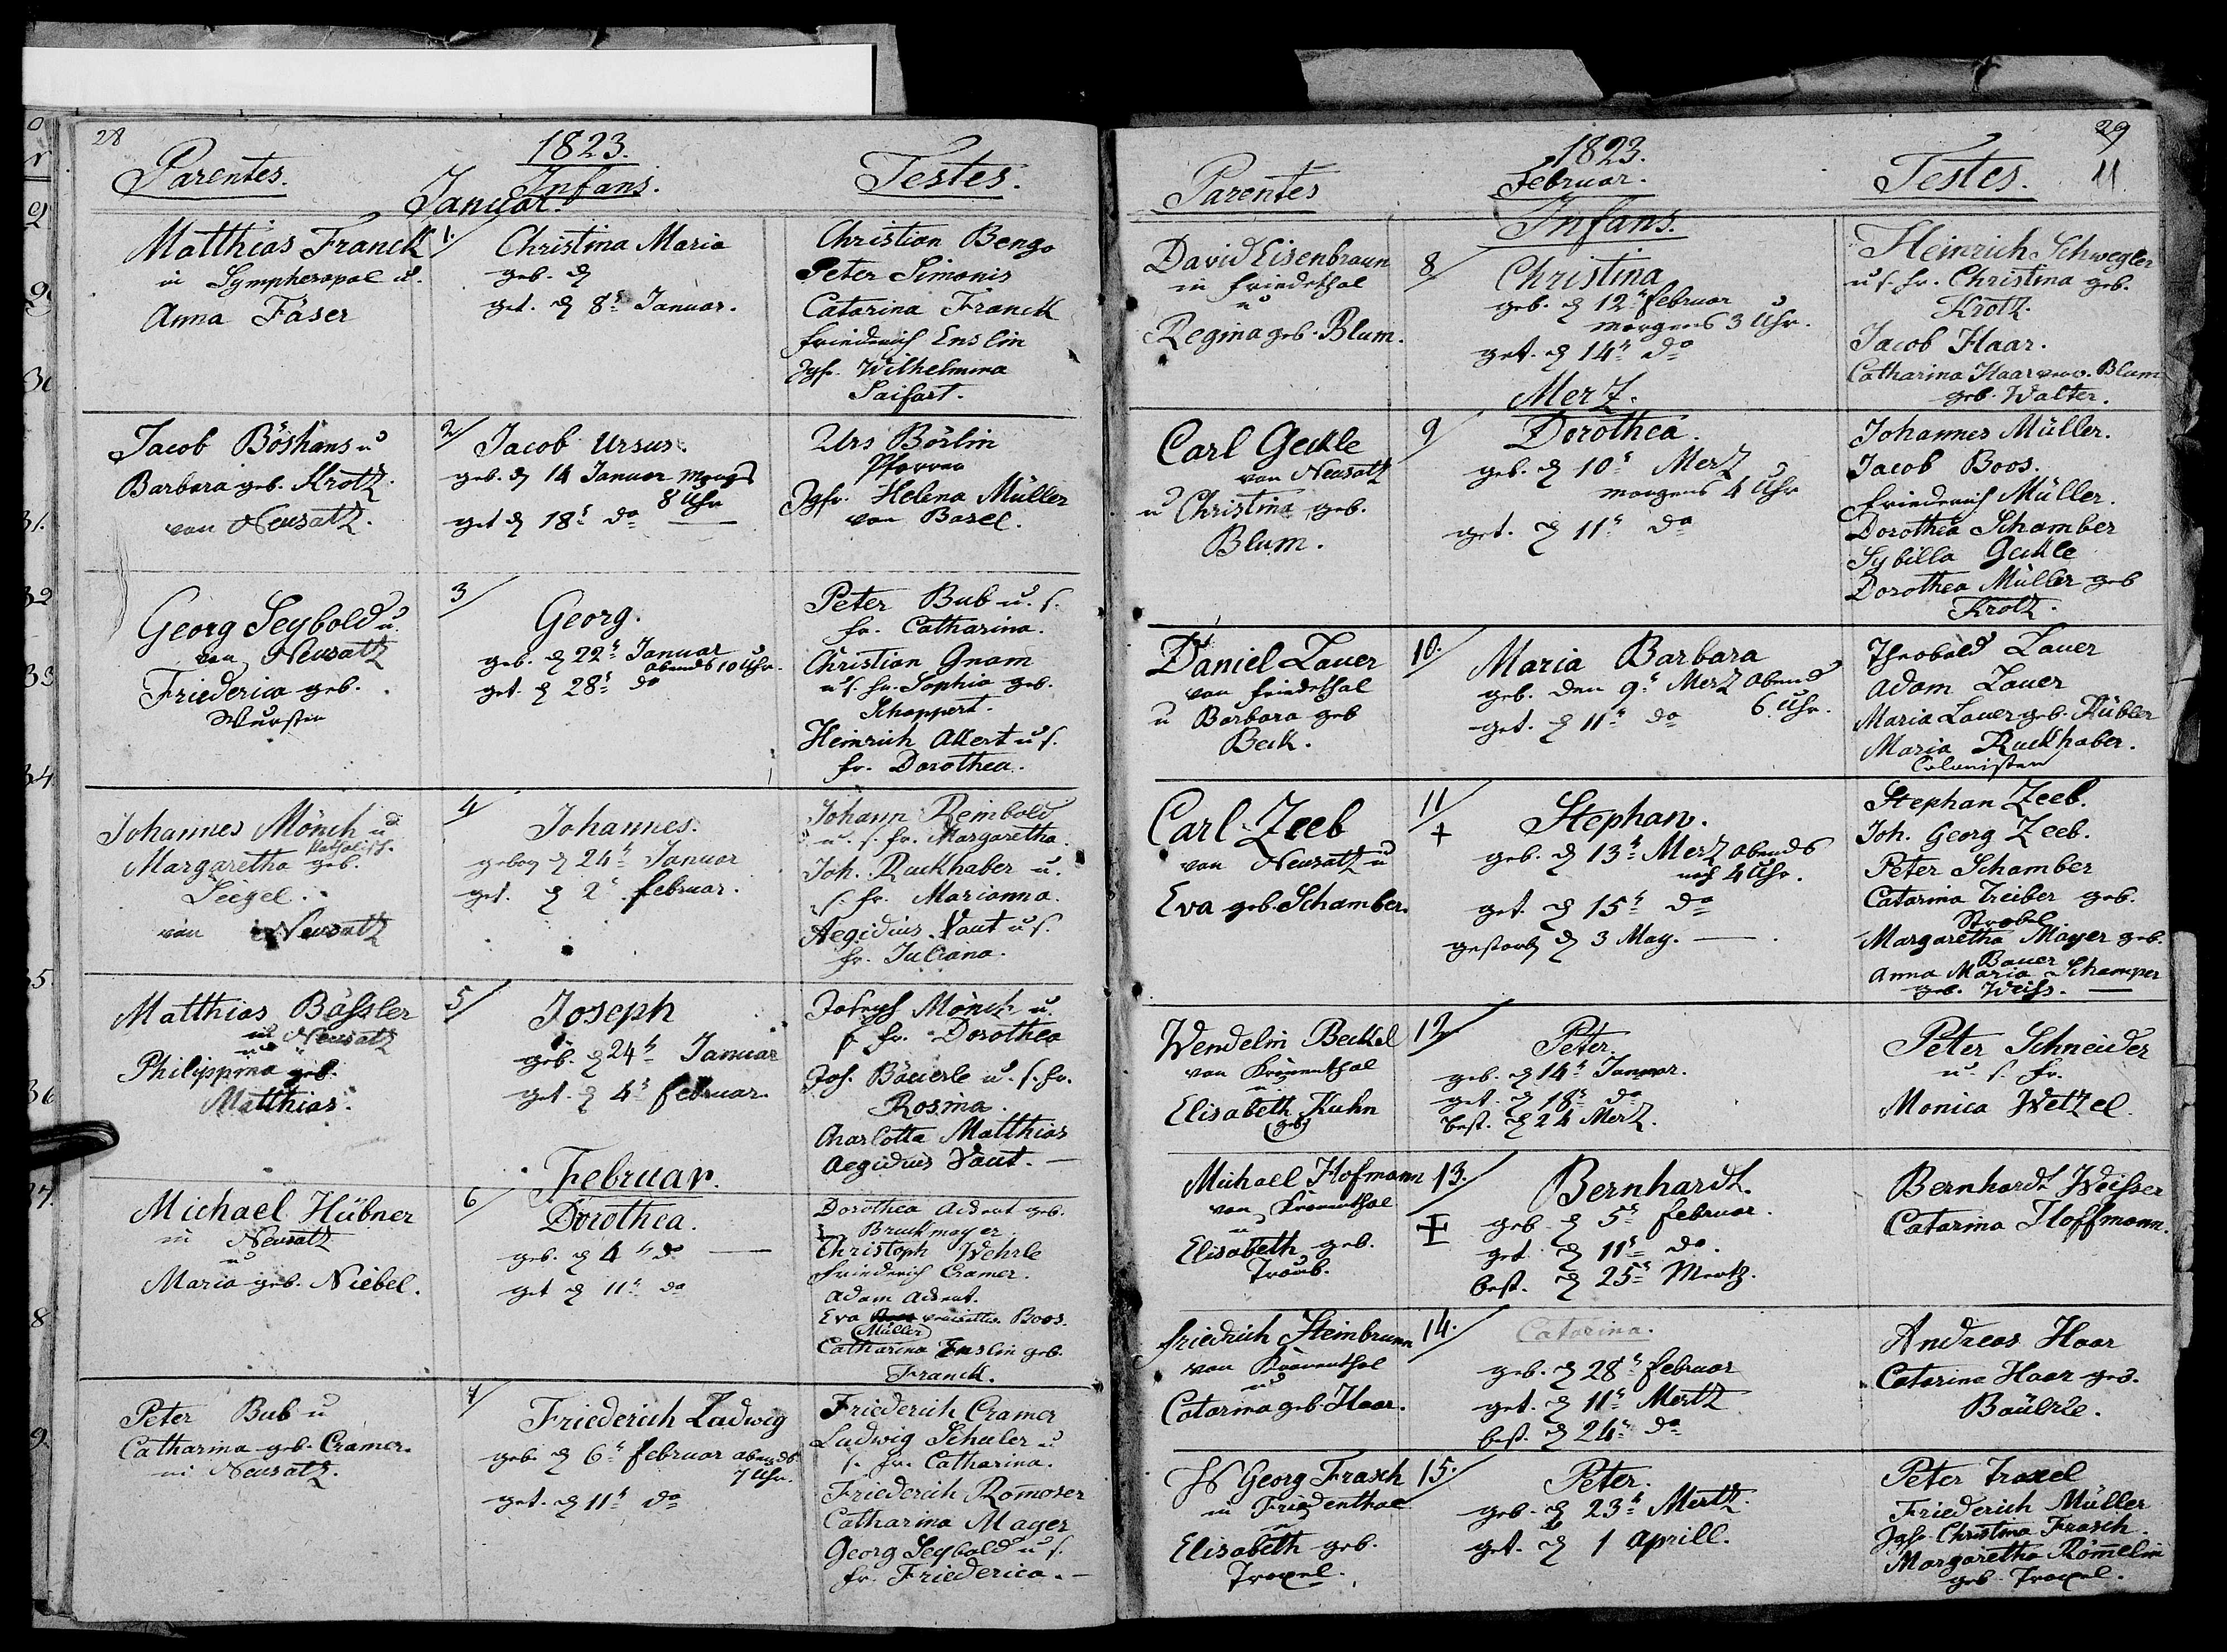 28
1823.
Parentes.
Infans.
Testes.
Januar.
Matthias Franck
in Sympheropol u.
Anna Fäser
1.
Christina Maria
geb. d
get. d 8t Januar.
Christian Bengo
Peter Simonis
Catarina Franck
Friederich Enslin
Jgfr. Wilhelmina
Saifart.
Jacob Böshans u
Barbara geb. Krotz.
von Neusatz.
2
Jacob Ursus.
geb. d 14 Januar Morgs
8 Uhr
get d 18t do
Urs Börlin
Pfarrer
Jgfr. Helena Müller
von Basel.
Georg Seybold u
von Neusatz
Friederica geb.
Wurster
3
Georg.
geb. d 22t Januar
abends 10 Uhr.
get. d 28t do
Peter Bub u. s.
fr. Catharina.
Christian Gnam
u s. fr. Sophia geb.
Schoppert.
Heinrich Allert u s.
fr. Dorothea.
Johannes Mönch u
Katholisch.
Margaretha geb.
Siegel.
von Neusatz
4
Johannes.
geborn d 24t Januar
get. d 2t februar.
Johann Reinbold
u. s. fr. Margaretha.
Joh. Ruckhaber u.
s. fr. Marianna.
Aegidius Vaut u s.
fr. Juliana.
Matthias Bässler
in Neusatz
und
Philippina geb.
Matthias.
5
Joseph
geb. d 24t Januar
get. d 4t februar.
Joseph Mönch u.
s fr. Dorothea
Jos. Bäuerle u. s. fr.
Rosina.
Charlotta Matthias
Aegidius Vaut.
Februar.
Michael Hübner
in Neusatz
u
Maria geb. Niebel.
6
Dorothea.
geb. d 4t do
get d 11t do
Dorothea Adent geb.
Bruckmayer
Christoph Wehrle
Friederich Cramer.
Adam Adent.
Eva verwittw. Boos.
(Müller)
Catharina Enslin geb.
Franck.
Peter Bub u
Catharina geb. Cramer.
in Neusatz.
7
Friederich Ludwig
geb. d 6t februar abends
7 Uhr.
get. d 11t do
Friederich Cramer
Ludwig Schuler u
s. fr. Catharina.
Friederich Romoser
Catharina Mayer
Georg Seybold u s.
fr. Friederica.
29
11
1823.
Parentes
Februar.
Testes.
Infans.
David Eisenbraun
in Friedethal
u
Regina geb. Blum.
8
Christina
geb. d 12t februar
morgens 3 Uhr.
get. d 14t do
Heinrich Schwegler
u s. fr. Christina geb.
Krotz.
Jacob Haar.
Catharina Haar verw. Blum
geb. Walter.
Merz.
Carl Geckle
von Neusatz
u Christina geb.
Blum.
9
Dorothea.
geb. d 10t Merz
morgens 4 Uhr
get. d 11t do
Johannes Müller.
Jacob Boos.
Friederich Müller.
Dorothea Schamber
Sybilla Geckle
Dorothea Müller geb
Krotz.
Daniel Lauer
von Friedethal
u Barbara geb
Beck.
10.
Maria Barbara
geb. den 9t Merz Abend
6 Uhr.
get. d 11t do
Theobald Lauer
Adam Lauer
Maria Lauer geb. Kübler
Maria Ruckhaber.
Colonisten
Carl Zeeb
von Neusatz u
Eva geb. Schamber.
11
+
Stephan.
geb. d 13t Merz abends
nach 4 Uhr.
get. d 15t do
gestorb d 3 May.
Stephan Zeeb.
Joh. Georg Zeeb.
Peter Schamber
Catarina Treiber geb.
Strobel
Margaretha Mayer geb.
Bauer
Anna Maria Schamper
geb. Weiss.
Wendelin Beckel
von Kronenthal
u
Elisabeth Kuhn
(geb)
12
Peter.
geb. d 14t Januar.
get. d 18t do
best. d 24 Merz.
Peter Schneider
u. s. fr.
Monica Wetzel.
Michael Hofmann
von Kronenthal
u
Elisabeth geb.
Traub.
13.
Bernhardt.
geb. d 5t februar.
get. d 11t do.
best. d 25t Mertz.
Bernhardt Weisser
Catarina Hoffmann.
Friedrich Steinbrunn
von Kronenthal
u
Catarina geb. Haar.
14.
Catarina.
geb. d 28t februar
get. d 11t Mertz
best. d 24t do
Andreas Haar
Catarina Haar geb.
Bäuerle.
Js Georg Frasch
in Friedenthal
u
Elisabeth geb.
Troxel.
15.
Peter.
geb. d 23t Mertz.
get. d 1 Aprill.
Peter Troxel
Friederich Müller
Jgfr. Christina Frasch.
Margaretha Römelin
geb. Troxel.